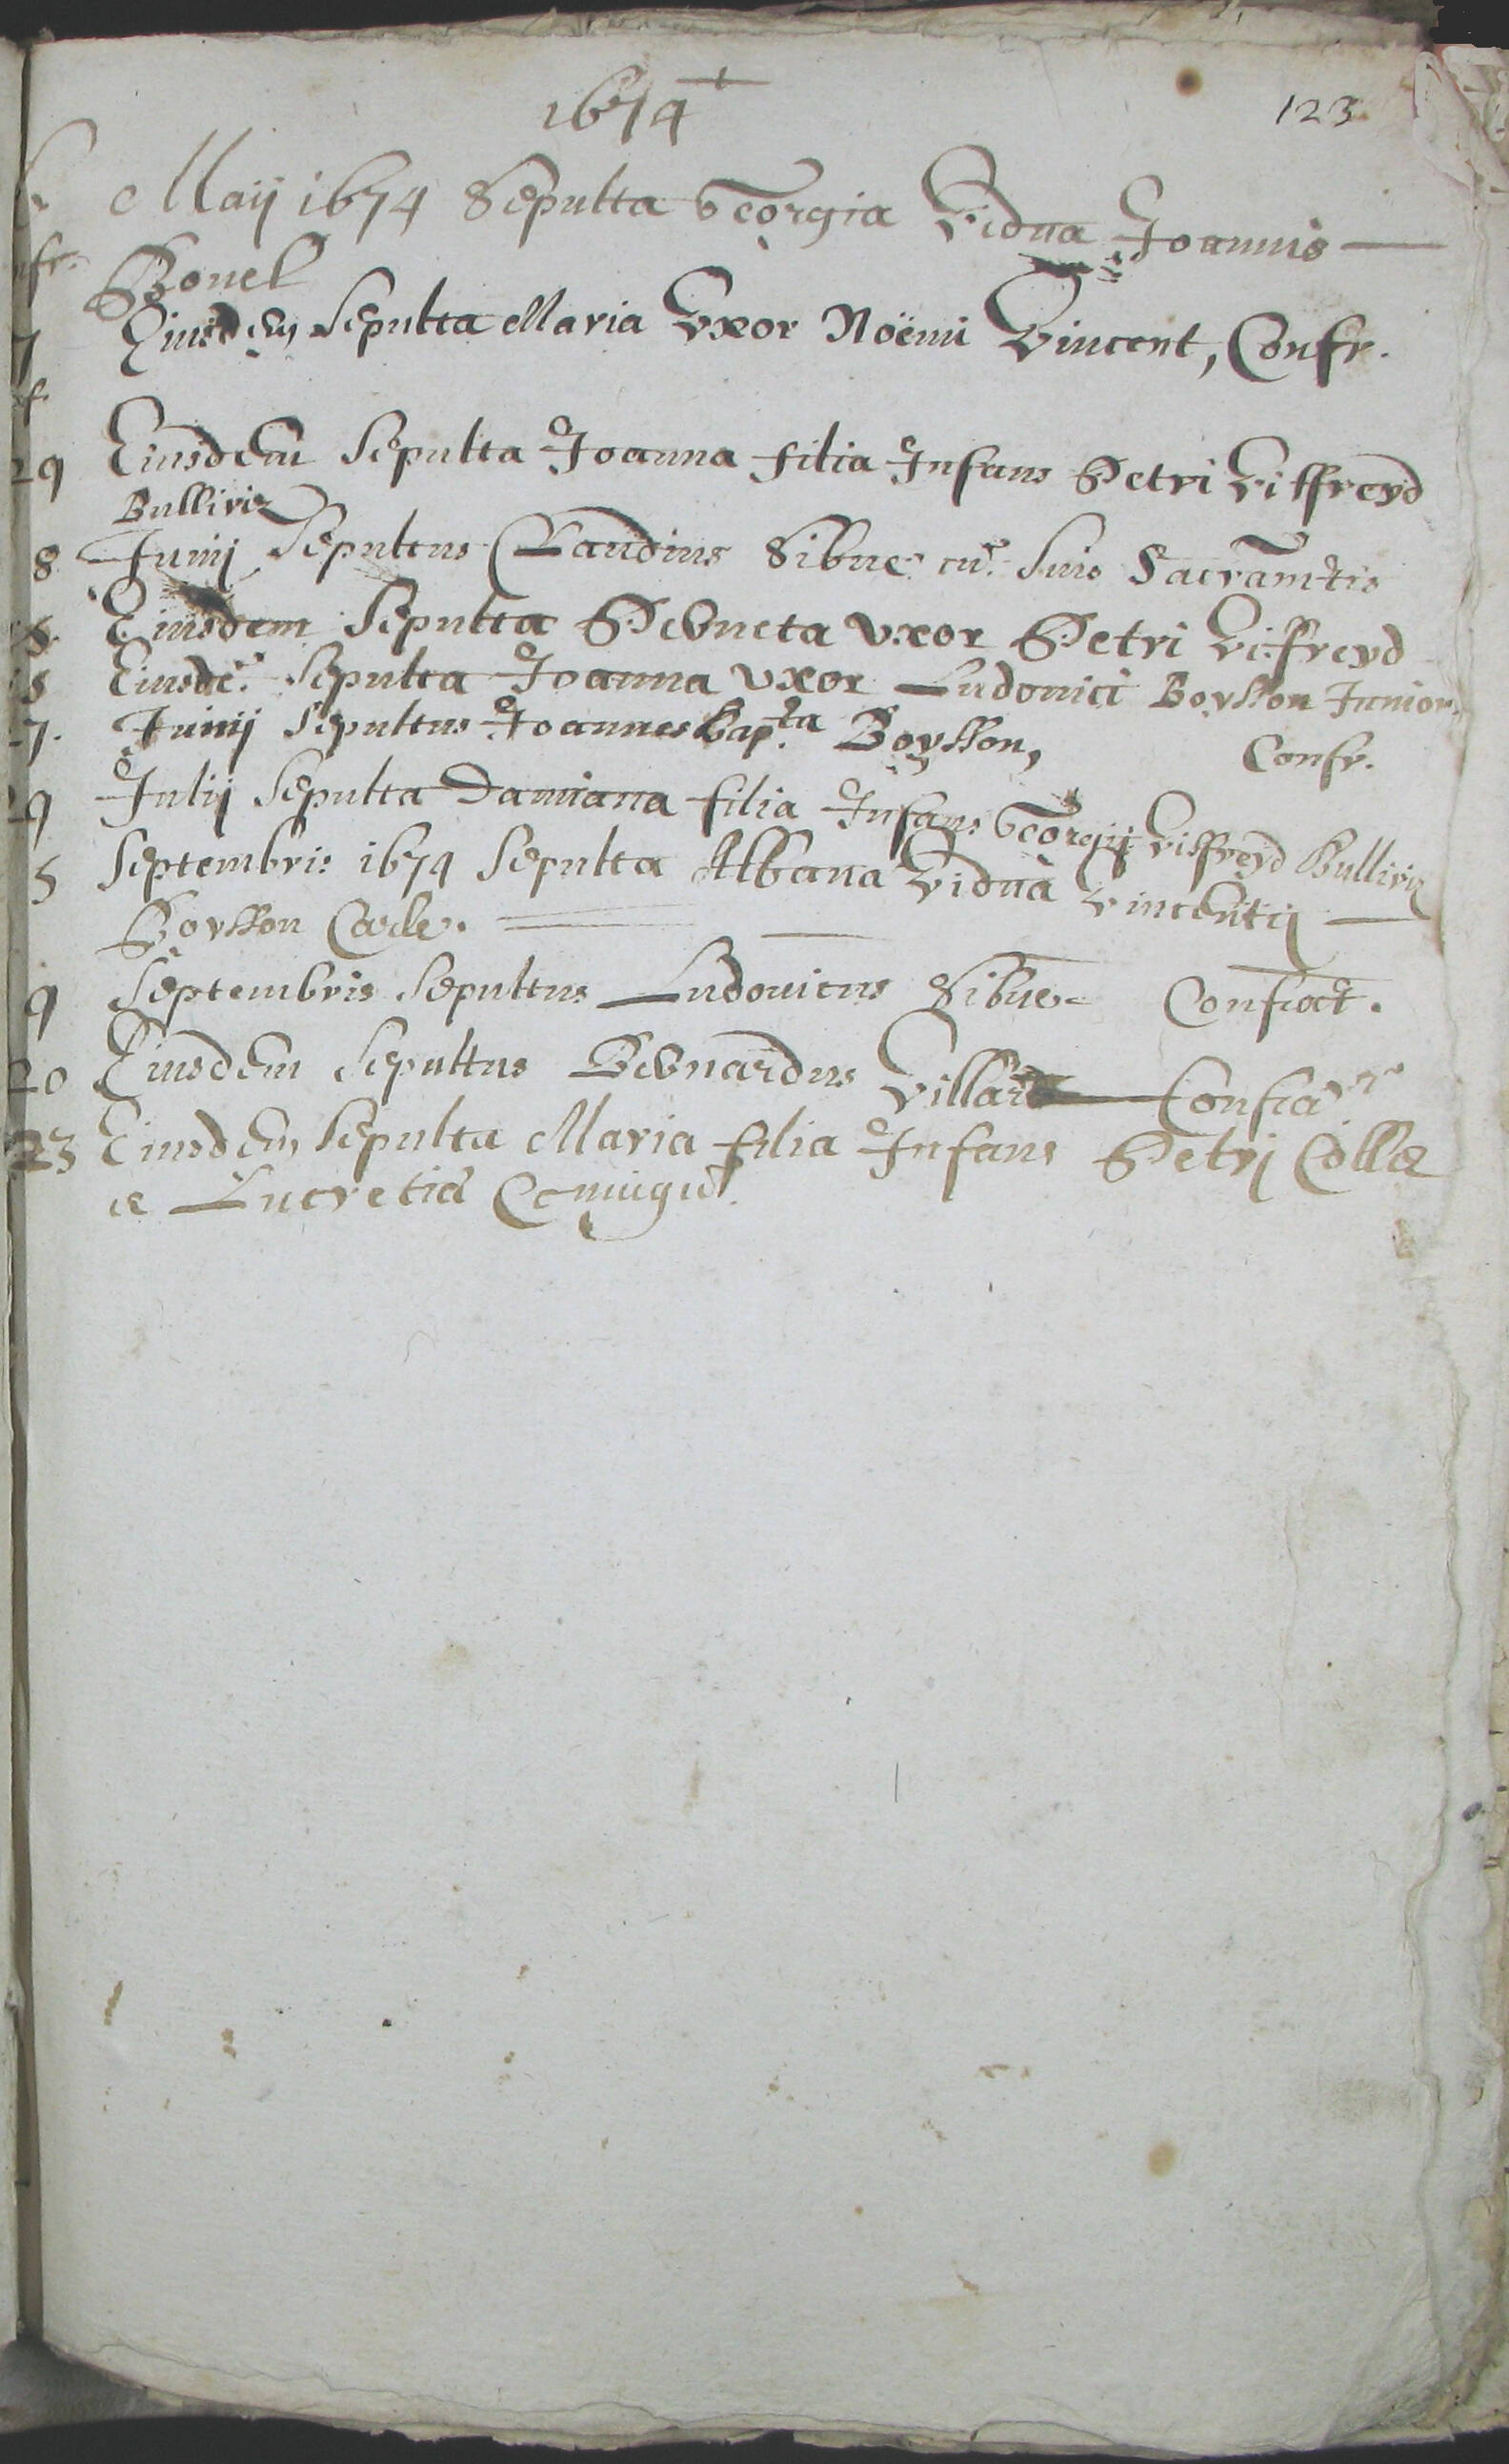 1674
123
Maij 1674 Sepulta Georgia Vidua Joannis
nfr. Bonel
7 Eiusdem Sepulta Maria Vxor Noëmi Vincent, Confr.
29 Eiusdem Sepulta Joanna filia Infans Petri Viffreyd
Bulliris
8 Junij Sepultus Claudius Sibue cū. suis Sacramtis
Eiusdem Sepulta Petrueta vxor Petri Viffreyd
15 Eiusdē. Sepulta Joanna vxor Ludouici Boysson Junior.
7. Junij Sepultus Joannes Bap.ta Boysson, Confr.
29 Julij Sepulta Damiana filia Infans Georgij Viffreyd Bulliris
5 Septembris 1674 Sepulta Albana Vidua Vincentij
Boysson Carle.
9 Septembris Sepultus Ludouicus Sibue Confrat.
20 Eiusdem Sepultus Bernardus Villard
23 Eiusdem Sepulta Maria filia Infans Petri Collæ
& Lucretiæ Coniugū.